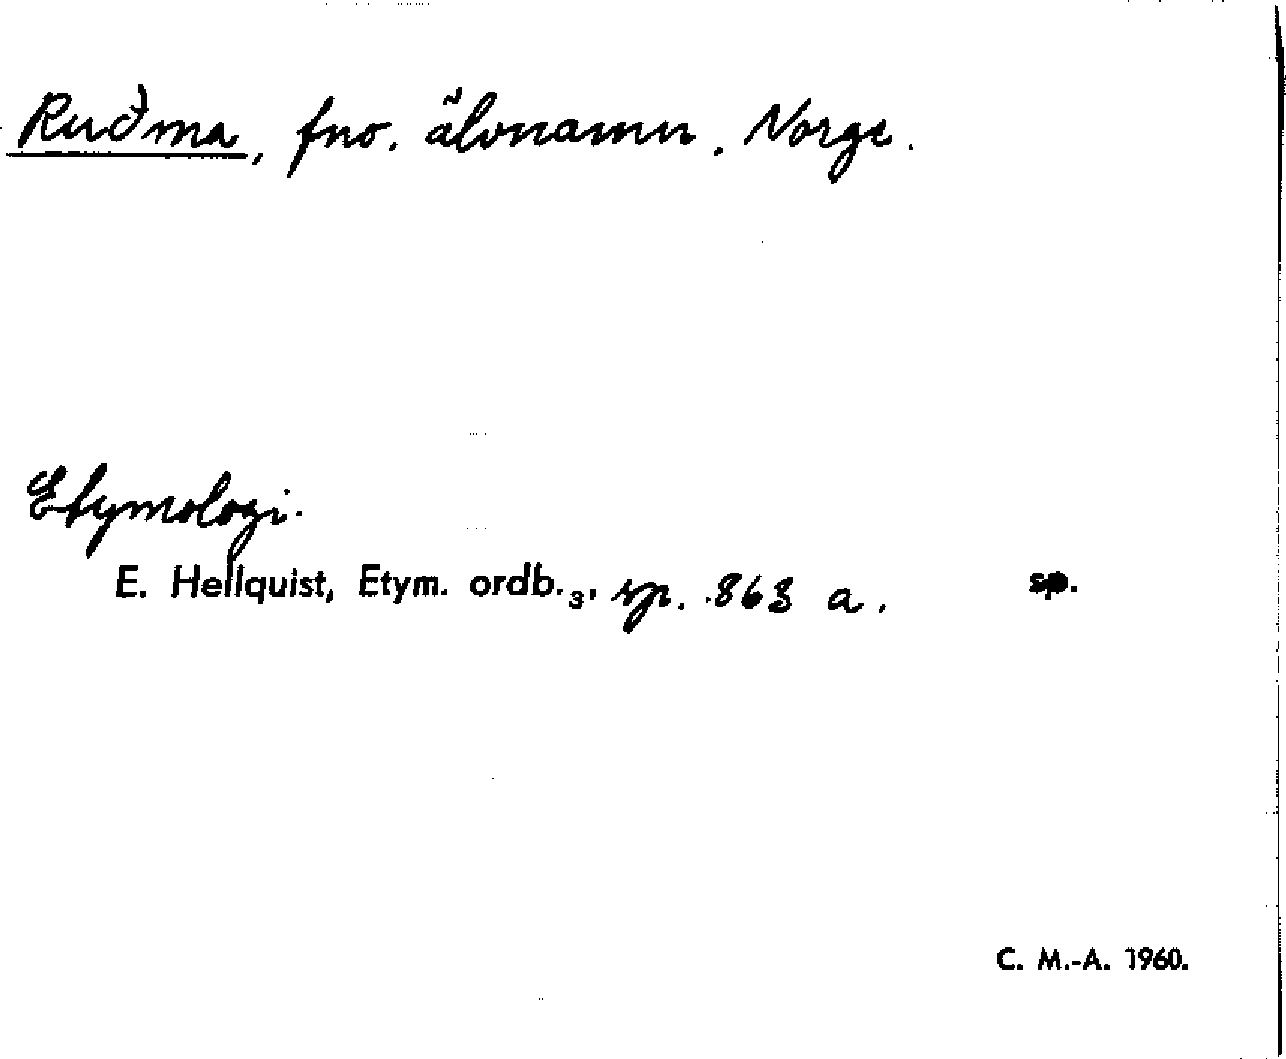 Ruðma, fno. älvnamn. Norge.
Etymologi.
E. Hellquist, Etym. ordb.₃, sp. 863 a. sp.
C. M.-A. 1960.